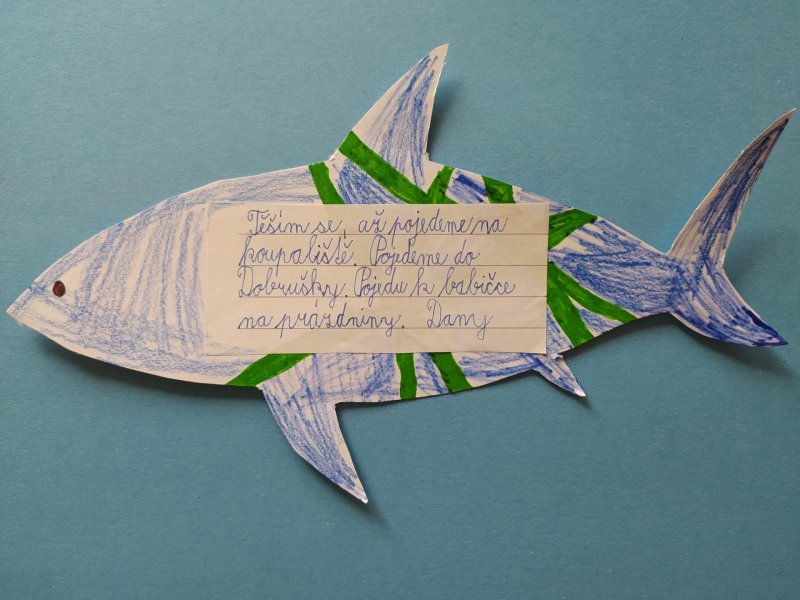 Těším se, až pojedeme na
koupaliště. Pojedeme do
Dobrušky. Pojedu k babičce
na prázdniny. Dany